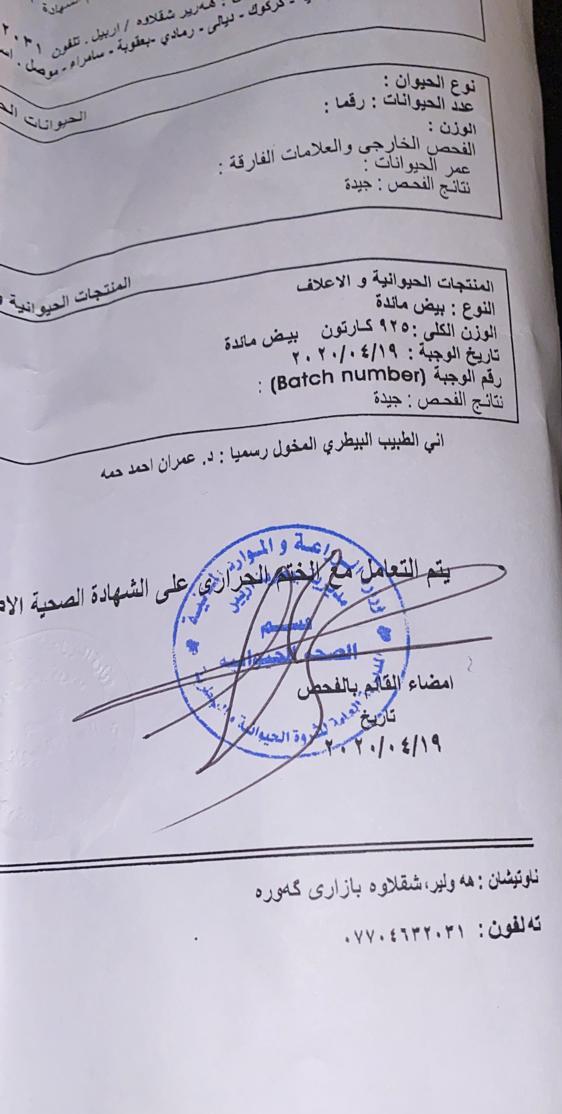 الشهادة
هرير شقلاوه / اربيل . تلفون ٢٠٣١
كركوك - ديالى - رمادي - بعقوبة - سامراء - موصل .
نوع الحيوان :
الحيوانات
عدد الحيوانات : رقما :
الوزن :
الفحص الخارجي والعلامات الفارقة :
عمر الحيوانات :
نتائج الفحص : جيدة
المنتجات الحيوانية و الاعلاف
المنتجات الحيوانية و
النوع : بيض مائدة
الوزن الكلي : ٩٢٥ كارتون بيض مائدة
تاريخ الوجبة : ٢٠٢٠/٠٤/١٩
رقم الوجبة (Batch number) :
نتائج الفحص : جيدة
اني الطبيب البيطري المخول رسميا : د. عمران احمد حمه
يتم التعامل مع الختم الحراري على الشهادة الصحية
وزارة الزراعة و الموارد المائية
قسم
الصحة الحيوانية
العامة للثروة الحيوانية
امضاء القائم بالفحص
تاريخ
٢٠٢٠/٠٤/١٩
ناونيشان : هه ولير، شقلاوه بازاری گەوره
ته لفون : ٠٧٧٠٤٦٣٢٠٣١